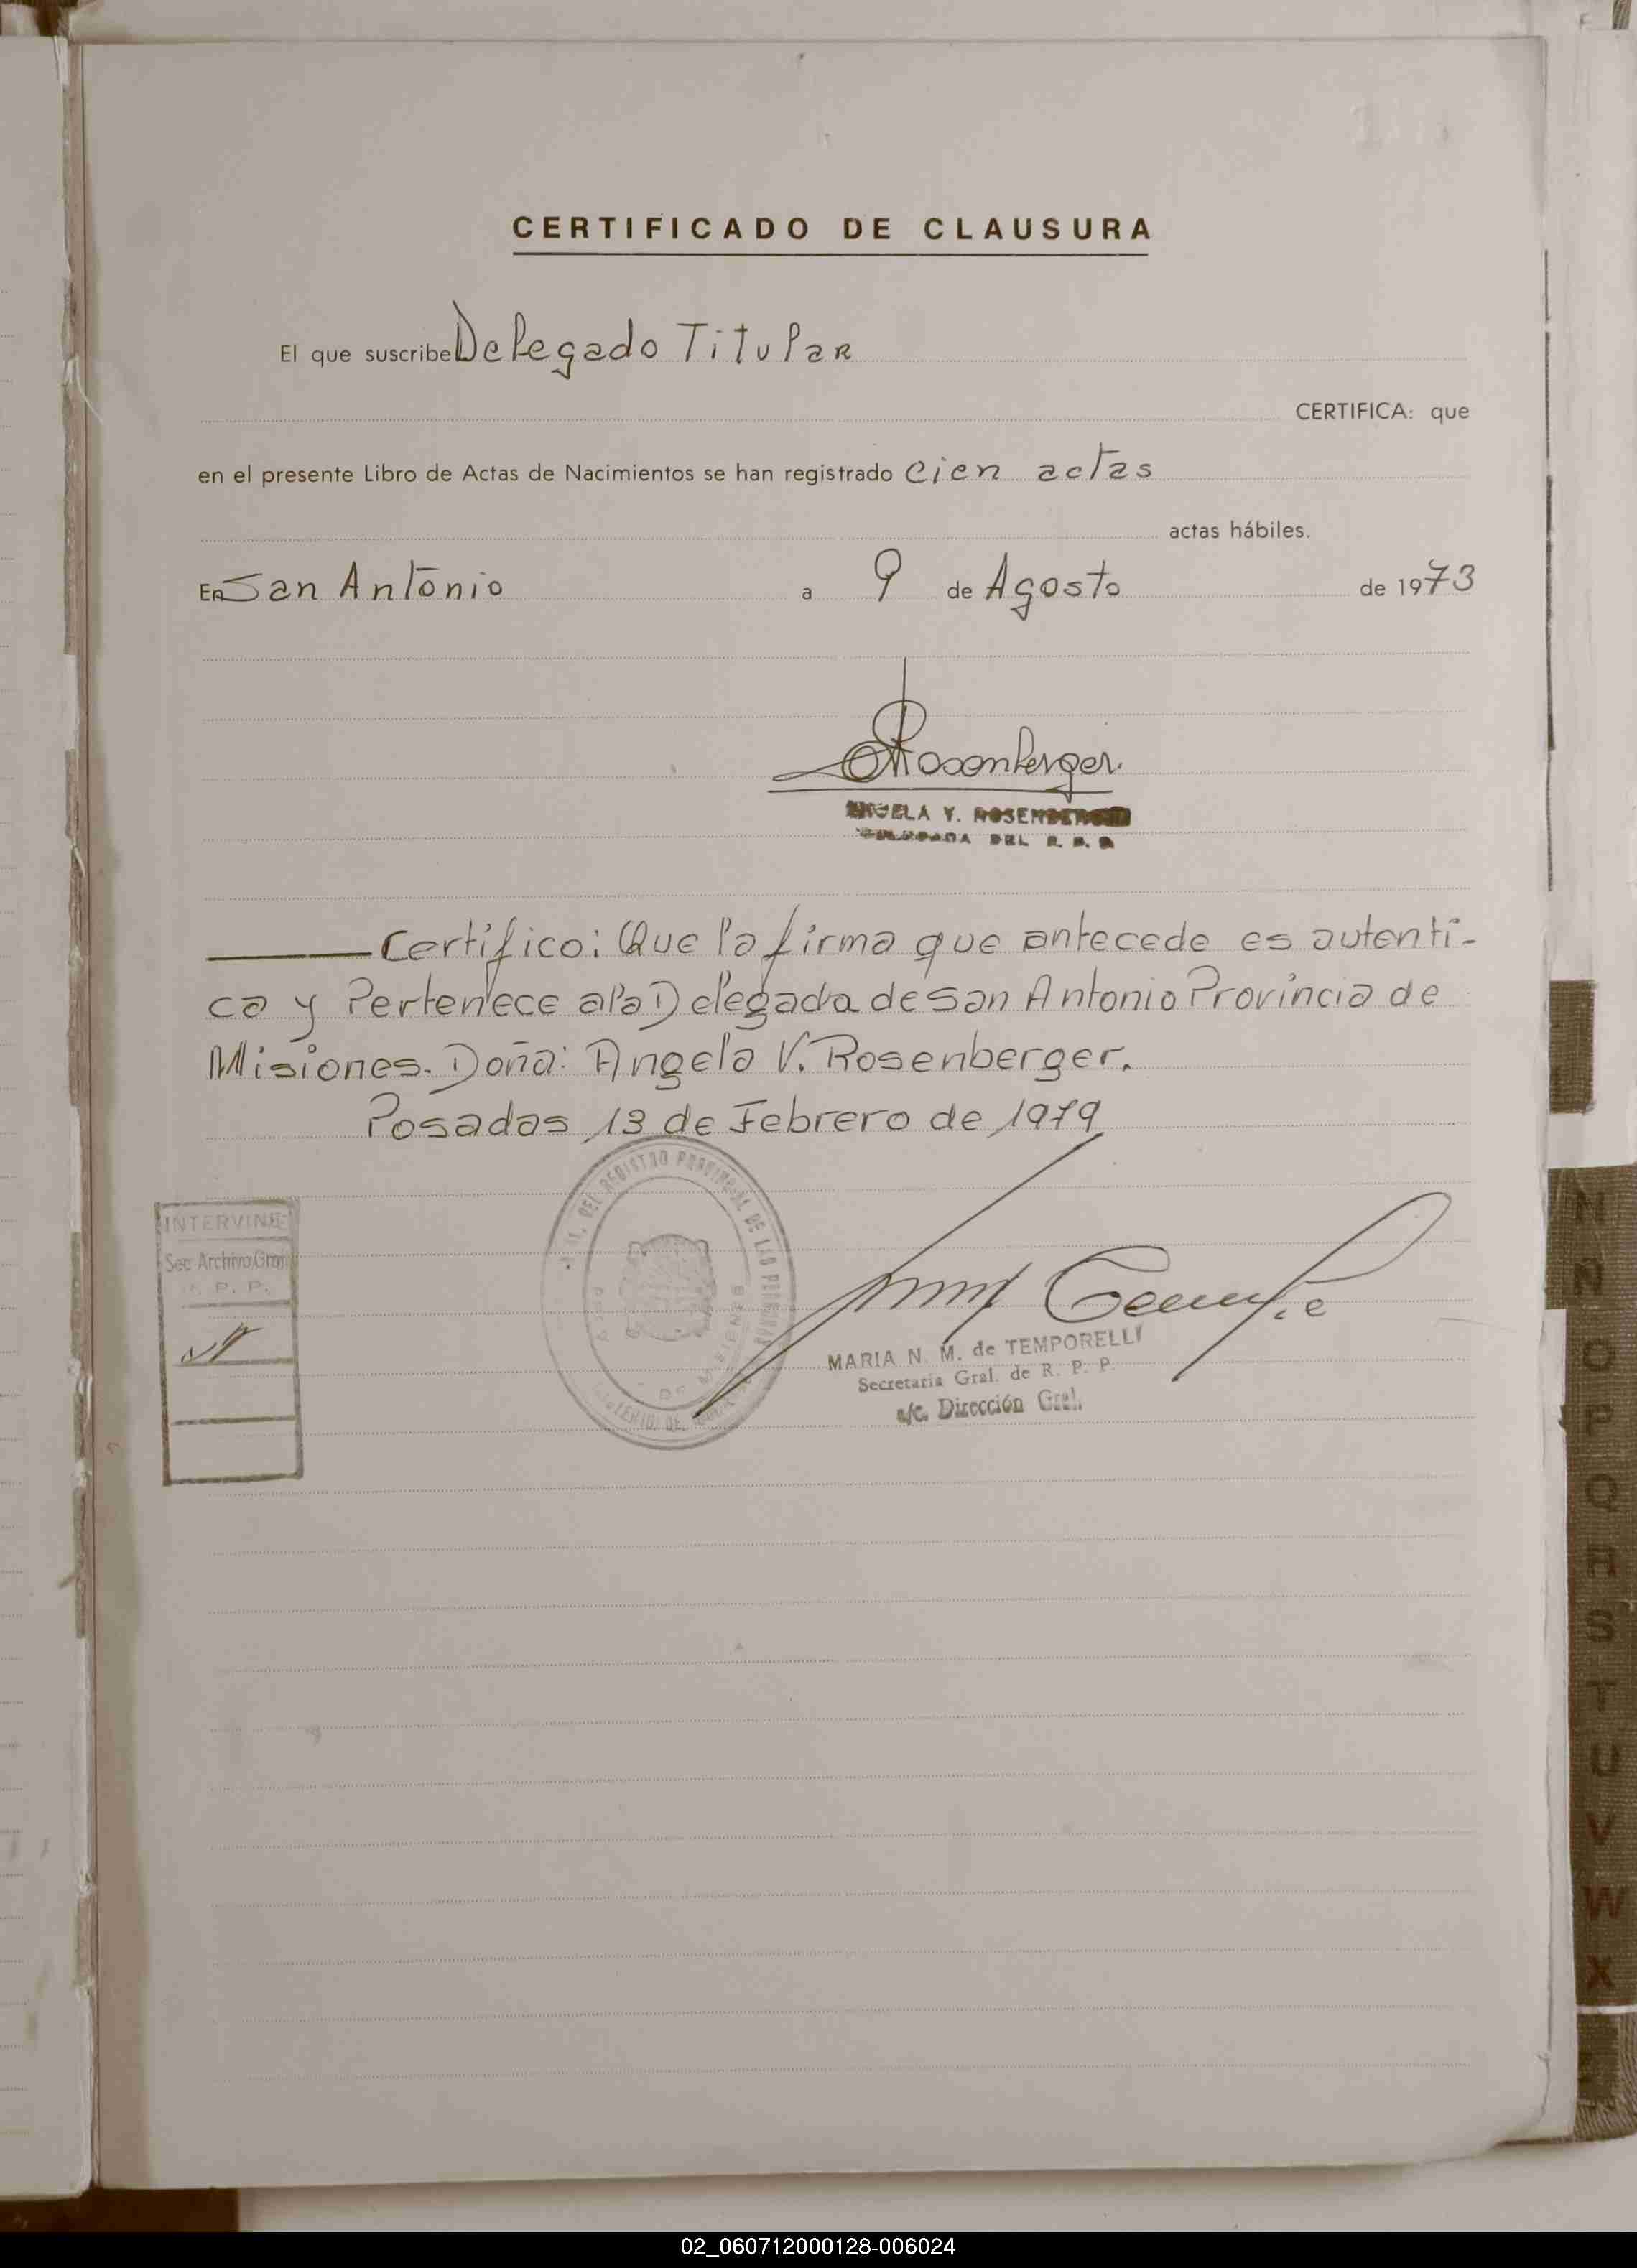 CERTIFICADO DE CLAUSURA
El que suscribe Delegado Titular
CERTIFICA: que
en el presente Libro de Actas de Nacimientos se han registrado Cien actas
actas hábiles.
En San Antonio a 9 de Agosto de 1973
Rosenberger.
ANGELA V. ROSENBERGER
DELEGADA DEL R. P. P.
Certifico: Que la firma que antecede es autenti-
ca y Pertenece a la Delegada de San Antonio Provincia de
Misiones. Doña: Angela V. Rosenberger.
Posadas 13 de Febrero de 1979
INTERVINE
Sec Archivo Gral.
R. P. P.
DEL REGISTRO PROVINCIAL DE LAS PERSONAS
MARIA N. M. de TEMPORELLI
Secretaria Gral. de R. P. P.
a/c. Dirección Gral.
M
N
O
P
Q
R
S
T
U
V
W
X
02_060712000128-006024